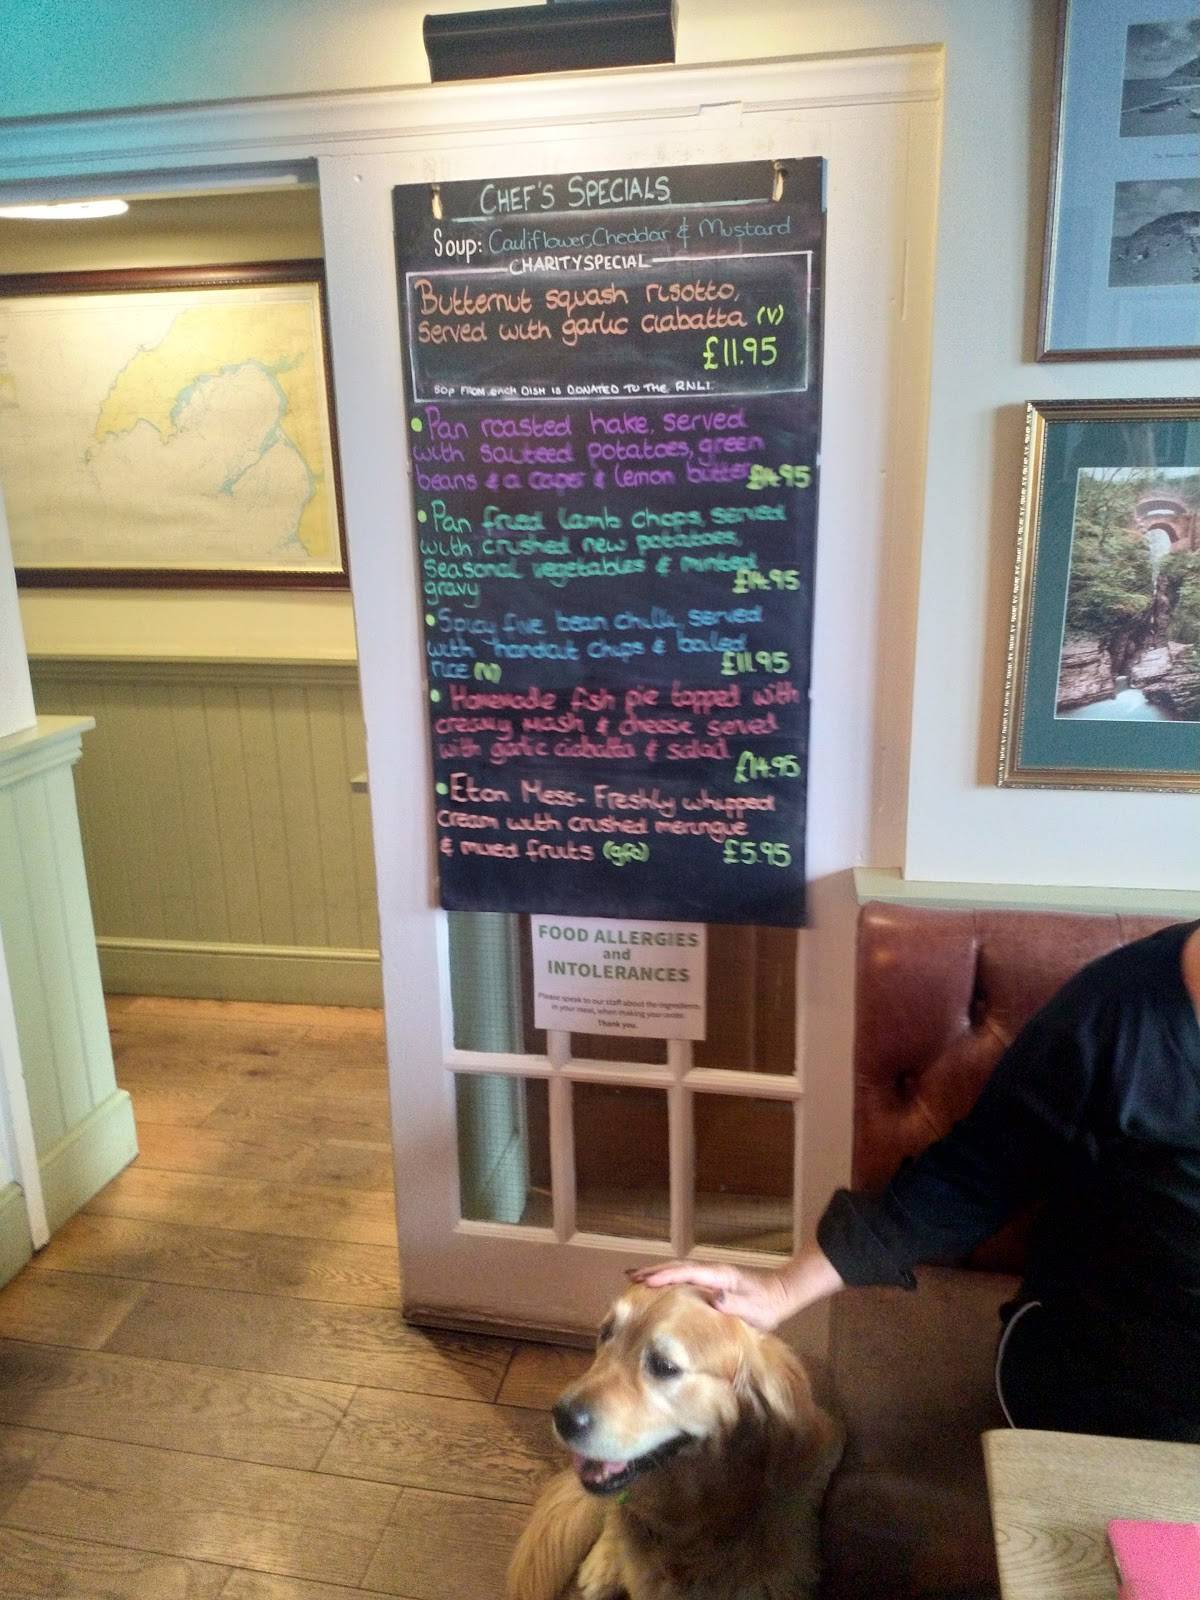 CHEF'S SPECIALS
Soup: Cauliflower, Cheddar & Mustard
CHARITY SPECIAL
Butternut squash risotto,
served with garlic ciabatta (V)
£11.95
50p FROM EACH DISH IS DONATED TO THE RNLI.
• Pan roasted hake, served
with sauteed potatoes, green
beans & a caper & lemon butter £14.95
• Pan fried lamb chops, served
with crushed new potatoes,
seasonal vegetables & minted
gravy £14.95
• Spicy five bean chilli, served
with handcut chips & boiled
rice (V) £11.95
• Homemade fish pie topped with
creamy mash & cheese served
with garlic ciabatta & salad
£14.95
• Eton Mess - Freshly whipped
cream with crushed meringue
& mixed fruits (gfo) £5.95
FOOD ALLERGIES
and
INTOLERANCES
Please speak to our staff about the ingredients
in your meal, when making your order.
Thank you.